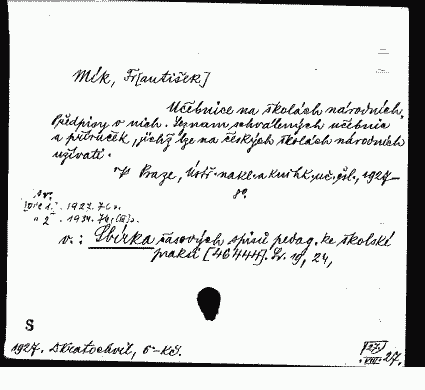 Mík, Fr[antišek]
Učebnice na školách národních.
Předpisy o nich. Seznam schválených učebnic
a příruček, jichž lze na českých školách národních
užívati.
V Praze, Ústř. nakl. a knihk. uč. čsl., 1927—
8°.
Sv.
[Díl 1.] 1927. 76 s.
" 2 . 1934. 74, [III] s.
v.: Sbírka časových spisů pedag. ke školské
praksi [46444]. Sv. 19, 24,
S
1927. D Kratochvíl, 6--Kč.
VIII. 27.